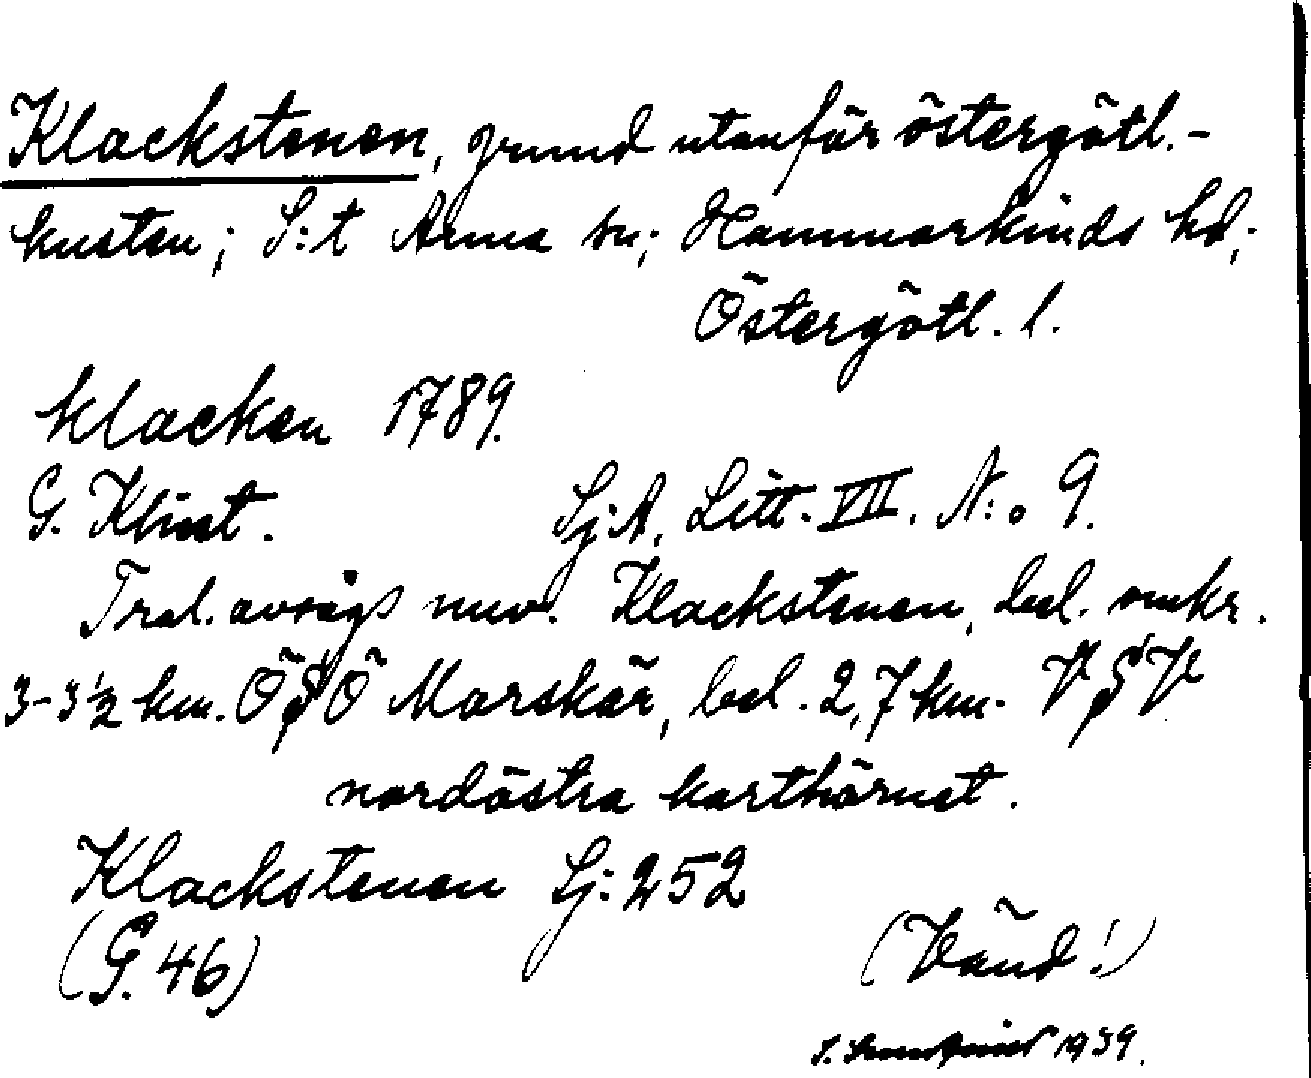 Klackstenen, grund utanför östergötl.-
kusten; S:t Anna sn; Hammarkinds hd;
Östergötl. l.
Klacken 1789.
G. Klint. Sj:A. Litt. VII. N:o 9.
Trol. avsågs nuv. Klackstenen, bel. omkr.
3-3½ km. ÖSÖ Morskär, bel. 2,7 km. VSV
nordöstra karthörnet.
Klackstenen Sj: 252
(G. 46) (Vänd!)
1939.